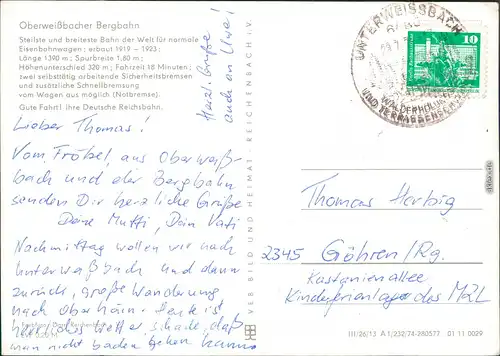 Oberweißbacher Bergbahn
Steilste und breiteste Bahn der Welt für normale
Eisenbahnwagen; erbaut 1919 - 1923;
Länge 1390 m; Spurbreite 1,80 m;
Höhenunterschied 320 m; Fahrzeit 18 Minuten;
zwei selbsttätig arbeitende Sicherheitsbremsen
und zusätzliche Schnellbremsung
vom Wagen aus möglich (Notbremse).
Gute Fahrt! Ihre Deutsche Reichsbahn.
Herzl. Grüße
auch an Uwe!
Lieber Thomas!
Vom Fröbel, aus Oberweiß-
bach und der Bergbahn
senden Dir herzliche Grüße
Deine Mutti, Dein Vati
Nachmittag wollen wir nach
Unterweißbach und dann
zurück, große Wanderung
nach Oberhain. Heute ist
herrliches Wetter, schade, daß
man nicht baden gehen kann
VEB BILD UND HEIMAT REICHENBACH I. V.
UNTERWEISSBACH
WALDERHOLUNG
UND TERRASSEN
10
Thomas Herbig
2345 Göhren/Rg.
Kastanienallee
Kinderferienlager des M2L
III/26/13 A 1/232/74-280577 01 11 0029